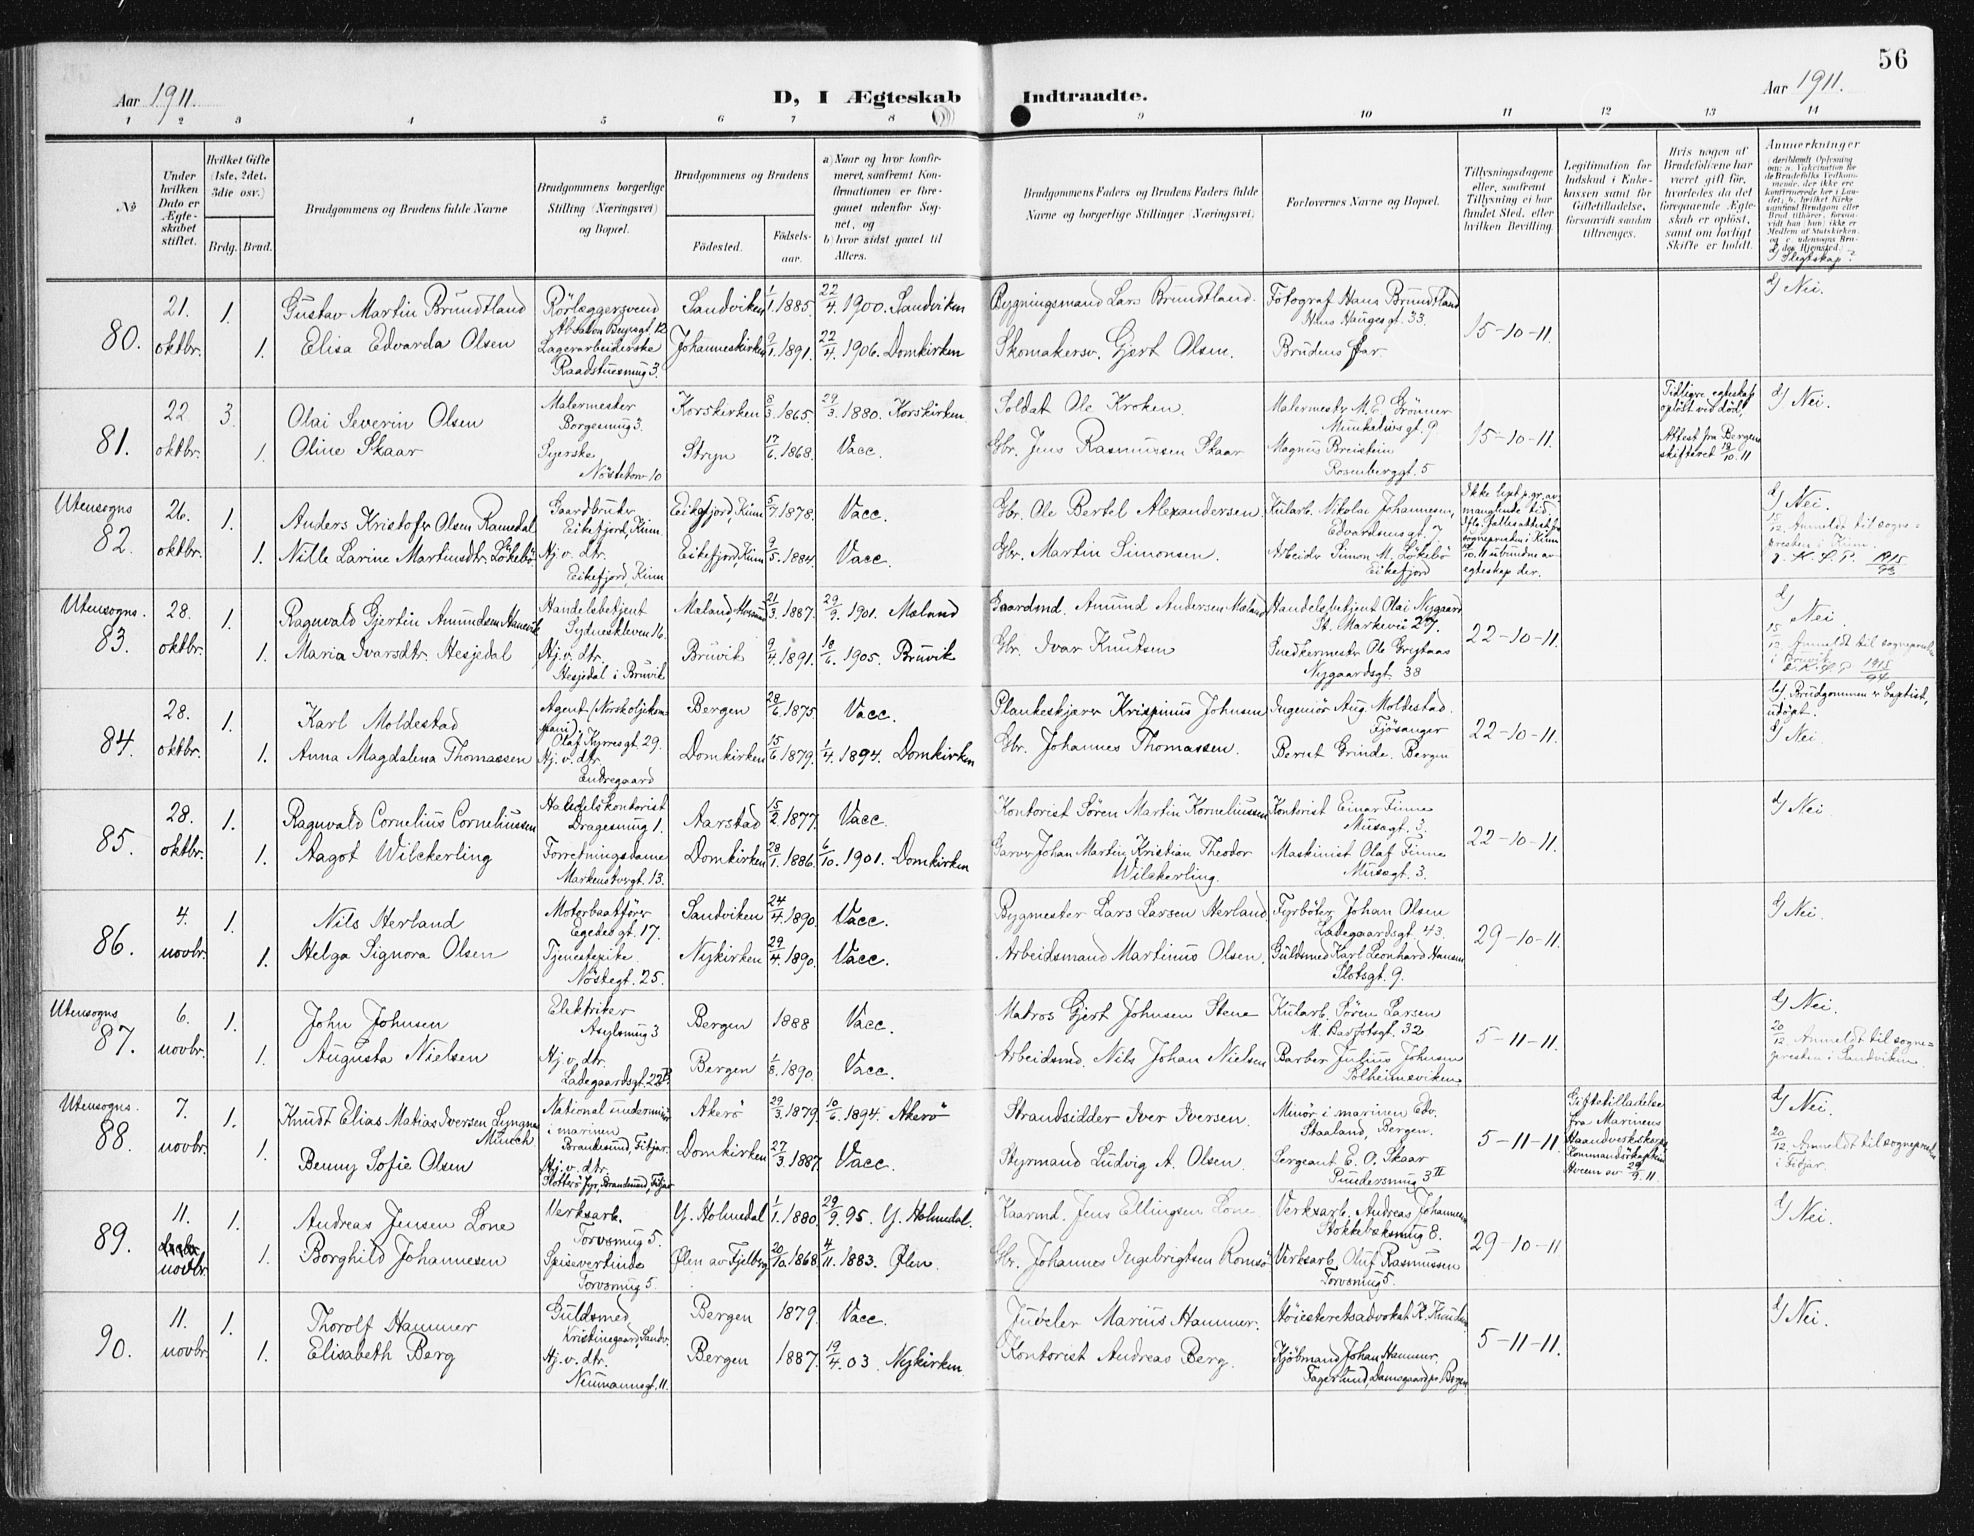 56
Aar 1911.
D, I Ægteskab Indtraadte.
Aar 1911.
1 2 3 4 5 6 7 8 9 10 11 12 13 14
No
Under hvilken Dato er Ægteskabet stiftet.
Hvilket Gifte (1ste, 2det, 3die osv.)
Brdg. Brud.
Brudgommens og Brudens fulde Navne
Brudgommens borgerlige Stilling (Næringsvei) og Bopæl.
Brudgommens og Brudens
Fødested. Fødselsaar.
a) Naar og hvor konfirmeret, samt om Konfirmationen er foregaaet udenfor Sognet, og
b) hvor sidst gaaet til Alters.
Brudgommens Faders og Brudens Faders fulde Navne og borgerlige Stillinger (Næringsvei)
Forlovernes Navne og Bopæl.
Tillysningsdagene eller, saafremt Tillysning ei har fundet Sted, efter hvilken Bevilling.
Legitimation for Indskud i Enkekassen samt for Giftetilladelse, forsaavidt saadan tiltrænges.
Hvis nogen af Brudefolkene har været gift før, hvorledes da det foregaaende Ægteskab er opløst, samt om lovligt Skifte er holdt.
Anmerkninger
80.
21. oktbr.
1. Gustav Martin Brundtland
Rørlæggersvend
Absalon Beyersgt. 12
Sandviken 1/1. 1885. 22/4. 1900. Sandviken
Bygningsmand Lars Brundtland.
Fotograf Hans Brundtland
Hans Haugesgt. 33.
15-10-11.
d/ Nei.
1. Elisa Edvarda Olsen
Lagerarbeiderske
Raadstuesmug 3.
Johanneskirken 9/1. 1891. 22/4. 1906. Domkirken
Skomakersv. Gjert Olsen.
Brudens far.
81.
22 oktbr.
3. Olai Severin Olsen
Malermester
Borgesmug 3.
Korskirken 8/3. 1865. 29/3. 1880. Korskirken.
Soldat Ole Kroken.
Malermestr M. E. Grønner
Munkelivsgt. 9
15-10-11.
Tidligre egteskap opløst ved død,
Attest fra Bergens skifteret 18/10. 11
d/ Nei.
1. Oline Skaar
Syerske
Nøstetorv 10
Stryn 17/6. 1868. Vacc.
Gbr. Jens Rasmussen Skaar
Magnus Breistein
Rosenberggt. 5
Utensogns
82.
26. oktbr.
1. Anders Kristofer Olsen Ramsdal
Gaardbruker
Eikefjord, Kinn
Eikefjord, Kinn 5/7. 1878. Vacc.
Gbr. Ole Bertel Alexandersen
Kularb. Nikolai Johannesen,
Edvardsensgt. 7
Ikke lyst p. gr. av manglende tid.
d/ Nei.
1. Nille Larine Martinsdtr. Løkebø
Hj. v. dtr.
Eikefjord, Kinn
Eikefjord, Kinn 9/5. 1884. Vacc.
Gbr. Martin Simonsen.
Arbeider Simon M. Løkebø
Eikefjord
Anmeldt til sognepresten i Kinn.
Utensogns.
83.
28. oktbr.
1. Ragnvald Gjertin Amundsen Hanevik
Handelsbetjent
Sydneskleven 16.
Mæland, Hosanger 21/3. 1887. 29/9. 1901. Mæland
Gaardmd. Amund Andersen Mæland
Handelsbetjent Olai Nygaard
St. Markevei 27.
22-10-11.
d/ Nei.
1. Maria Ivarsdtr. Hesjedal
Hj. v. dtr.
Hesjedal i Bruvik
Bruvik 9/4. 1891. 18/6. 1905. Bruvik
Gbr. Ivar Knutsen
Snedkermester Ole Grytaas
Nygaardsgt. 38
15/12. Anmeldt til sognepresten i Bruvik
84.
28. oktbr.
1. Karl Moldestad
Agent (Norsk oljekompani),
Olaf Kyrresgt. 29.
Bergen 28/6. 1875. Vacc.
Plankeskjærer Krispinus Johnsen
Ingeniør Aug. Moldestad.
Fjøsanger
22-10-11.
b/ Brudgommen er baptist, udøpt.
1. Anna Magdalena Thomassen
Hj. v. dtr.
Endregaard
Domkirken 15/6. 1879. 1/4. 1894. Domkirken
Gbr. Johannes Thomassen.
Bernt Grinde. Bergen
d/ Nei.
85.
28. oktbr.
1. Ragnvald Cornelius Corneliussen
Handelskontorist
Dragesmug 1.
Aarstad 15/2. 1877. Vacc.
Kontorist Søren Martin Korneliussen
Kontorist Einar Finne
Musegt. 3.
22-10-11.
d/ Nei
1. Aagot Wilckerling
Forretningsdame
Markensborgt. 13.
Domkirken 28/1. 1886. 6/10. 1901. Domkirken
Garver Johan Martin Kristian Theodor Wilckerling.
Maskinist Olaf Finne
Musegt. 3.
86.
4. novbr.
1. Nils Herland
Motorbaatfører
Egedesgt. 17.
Sandviken 24/4. 1890. Vacc.
Bygmester Lars Larsen Herland
Fyrbøter Johan Olsen
Ladegaardsgt. 43.
29-10-11.
d/ Nei.
1. Helga Signora Olsen
Tjenestepike
Nøstegt. 25.
Nykirken 29/4. 1890. Vacc.
Arbeidsmand Martinus Olsen.
Guldsmed Karl Leonhard Hansen
Slotsgt. 9.
Utensogns
87.
6. novbr.
1. John Johnsen
Elektriker
Asylsmug 3
Bergen 1888 Vacc.
Matros Gjert Johnsen Stene
Kularb. Søren Larsen
M. Barfotsgt. 32
5-11-11.
d/ Nei.
1. Augusta Nielsen
Hj. v. dtr.
Ladegaardsgt. 22B.
Bergen 1/8. 1890. Vacc.
Arbeidsmd. Nils Johan Nielsen
Barber Julius Johnsen
Solheimsviken
20/12. Anmeldt til sognepresten i Sandviken
Utensogns.
88.
7. novbr.
1. Knudt Elias Matias Iversen Lyngnes Munch
National underminør i marinen
Brandesund, Fitjar.
Akerø 29/3. 1879. 10/6. 1894. Akerø
Strandsidder Iver Iversen.
Minør i marinen Edv. Staaland, Bergen.
5-11-11.
Giftetilladelse fra Marinens Haandverkskorps Kommandørkaptein Aveen av 29/9. 11.
d/ Nei.
1. Benny Sofie Olsen
Hj. v. dtr.
Slotterø Fyr, Brandesund, Fitjar
Domkirken 27/3. 1887. Vacc.
Styrmand Ludvig A. Olsen.
Sergeant E. O. Skaar
Pundersmug 3 II
20/12. Anmeldt til sognepresten i Fitjar.
89.
11. novbr.
1. Andreas Jensen Lone
Verksarb.
Torvsmug 5.
Y. Holmedal 1/1. 1880. 29/9. 95. Y. Holmedal.
Kaarmd. Jens Ellingsen Lone
Verksarb. Andreas Johannesen
Stokkebæksmug 8.
29-10-11
d/ Nei.
1. Borghild Johannesen
Spisevertinde
Torvsmug 5.
Ølen av Fjelberg 20/10. 1868. 4/11. 1883. Ølen.
Gbr. Johannes Ingebrigtsen Romsø
Verksarb. Oluf Rasmussen
Torvsmug 5.
90.
11. novbr.
1. Thorolf Hammer
Guldsmed
Kristinegaard, Sandv.
Bergen 1879. Vacc.
Juveler Marius Hammer.
Høiesteretsadvokat K. Knudsen
5-11-11.
d/ Nei.
1. Elisabeth Berg
Hj. v. dtr.
Neumannsgt. 11.
Bergen 1887. 19/4. 03. Nykirken
Kontorist Andreas Berg.
Kjøbmand Johan Hammer,
Fagerlund, Damsgaard pr. Bergen